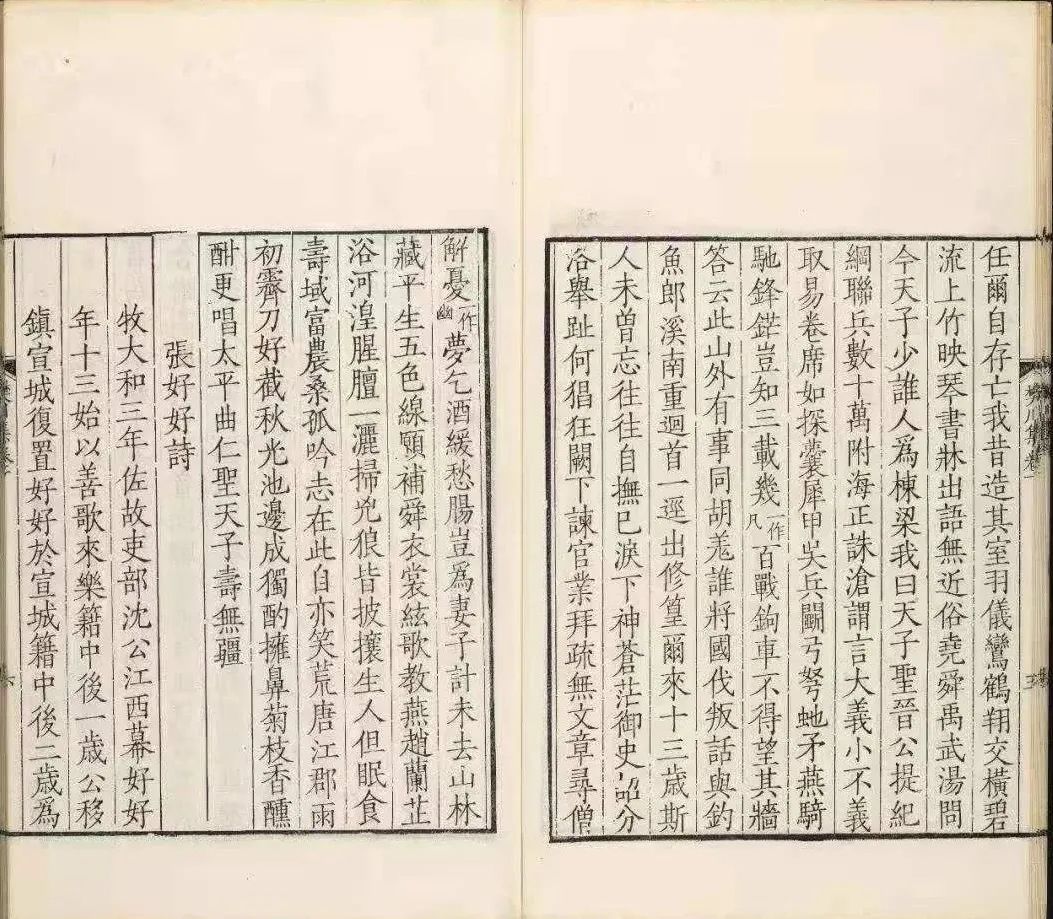 任爾自存亡我昔造其室羽儀鸞鶴翔交橫碧
流上竹映琴書牀出語無近俗堯舜禹武湯問
今天子少誰人爲棟梁我曰天子聖晉公提紀
綱聯兵數十萬附海正誅滄謂言大義小不義
取易卷席如探囊犀甲吳兵鬭弓弩虵矛燕騎
馳鋒鋩豈知三載幾一作凡百戰鉤車不得望其牆
答云此山外有事同胡羌誰將國伐叛話與釣
魚郎溪南重迴首一逕出修篁爾來十三歲斯
人未曾忘往往自撫已淚下神蒼茫御史詔分
洛舉趾何猖狂闕下諫官業拜疏無文章尋僧
解憂一作幽夢乞酒緩愁腸豈爲妻子計未去山林
藏平生五色線願補舜衣裳絃歌教燕趙蘭芷
浴河湟腥膻一灑掃兇狼皆披攘生人但眠食
壽域富農桑孤吟志在此自亦笑荒唐江郡雨
初霽刀好截秋光池邊成獨酌擁鼻菊枝香醺
酣更唱太平曲仁聖天子壽無疆
張好好詩
牧大和三年佐故吏部沈公江西幕好好
年十三始以善歌來樂籍中後一歲公移
鎮宣城復置好好於宣城籍中後二歲爲